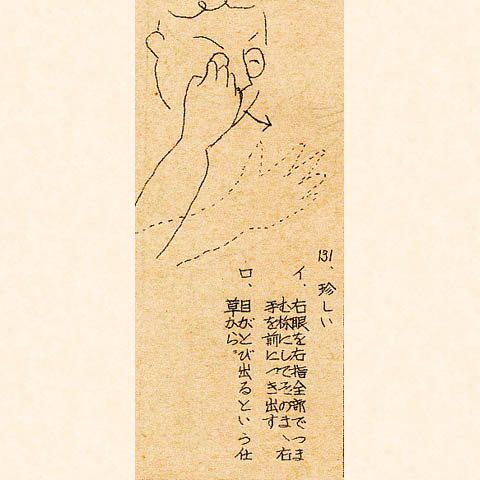 131、珍しい
イ、右眼を右指全部でつま
む様にしてそのまゝ右
手を前につき出す
ロ、目がとび出るという仕
草から。